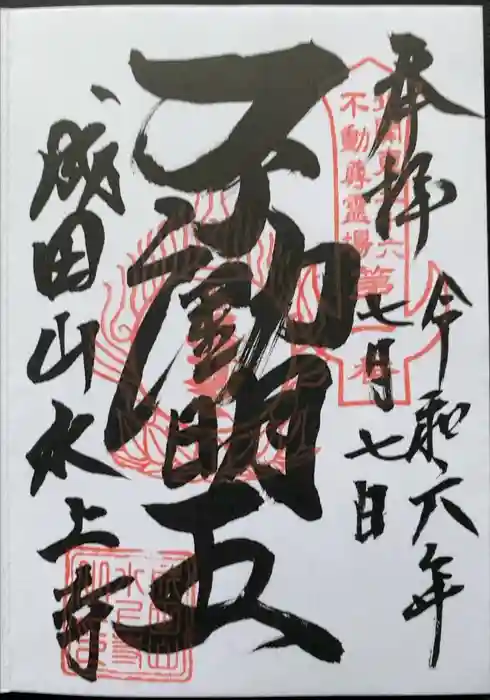 奉拝
令和六年
七月七日
北関東三十六
不動尊霊場
第一番
不動明王
成田山水上寺